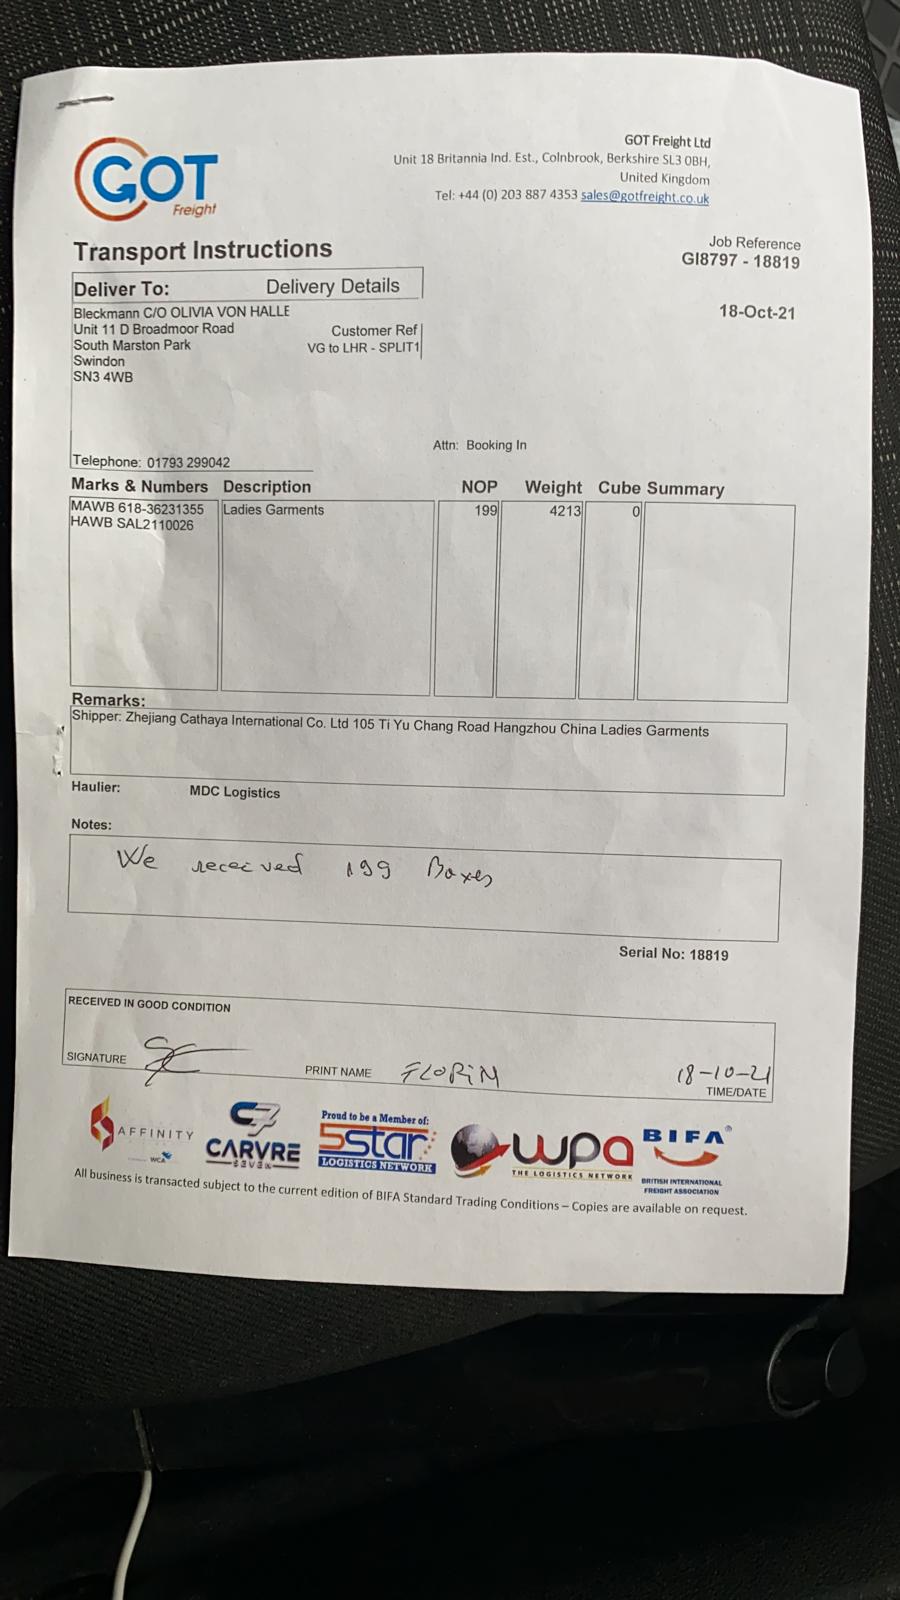 GOT
Freight
GOT Freight Ltd
Unit 18 Britannia Ind. Est., Colnbrook, Berkshire SL3 0BH,
United Kingdom
Tel: +44 (0) 203 887 4353 sales@gotfreight.co.uk
Transport Instructions
Job Reference
GI8797 - 18819
Deliver To: Delivery Details
18-Oct-21
Bleckmann C/O OLIVIA VON HALLE
Unit 11 D Broadmoor Road
South Marston Park
Swindon
SN3 4WB
Customer Ref
VG to LHR - SPLIT1
Attn: Booking In
Telephone: 01793 299042
Marks & Numbers Description NOP Weight Cube Summary
MAWB 618-36231355 Ladies Garments 199 4213 0
HAWB SAL2110026
Remarks:
Shipper: Zhejiang Cathaya International Co. Ltd 105 Ti Yu Chang Road Hangzhou China Ladies Garments
Haulier: MDC Logistics
Notes:
We received 199 Boxes
Serial No: 18819
RECEIVED IN GOOD CONDITION
SIGNATURE PRINT NAME FLORIN 18-10-21
TIME/DATE
AFFINITY
WCA
CARVRE
SEVEN
Proud to be a Member of:
5star
LOGISTICS NETWORK
wpa
THE LOGISTICS NETWORK
BIFA
BRITISH INTERNATIONAL
FREIGHT ASSOCIATION
All business is transacted subject to the current edition of BIFA Standard Trading Conditions – Copies are available on request.